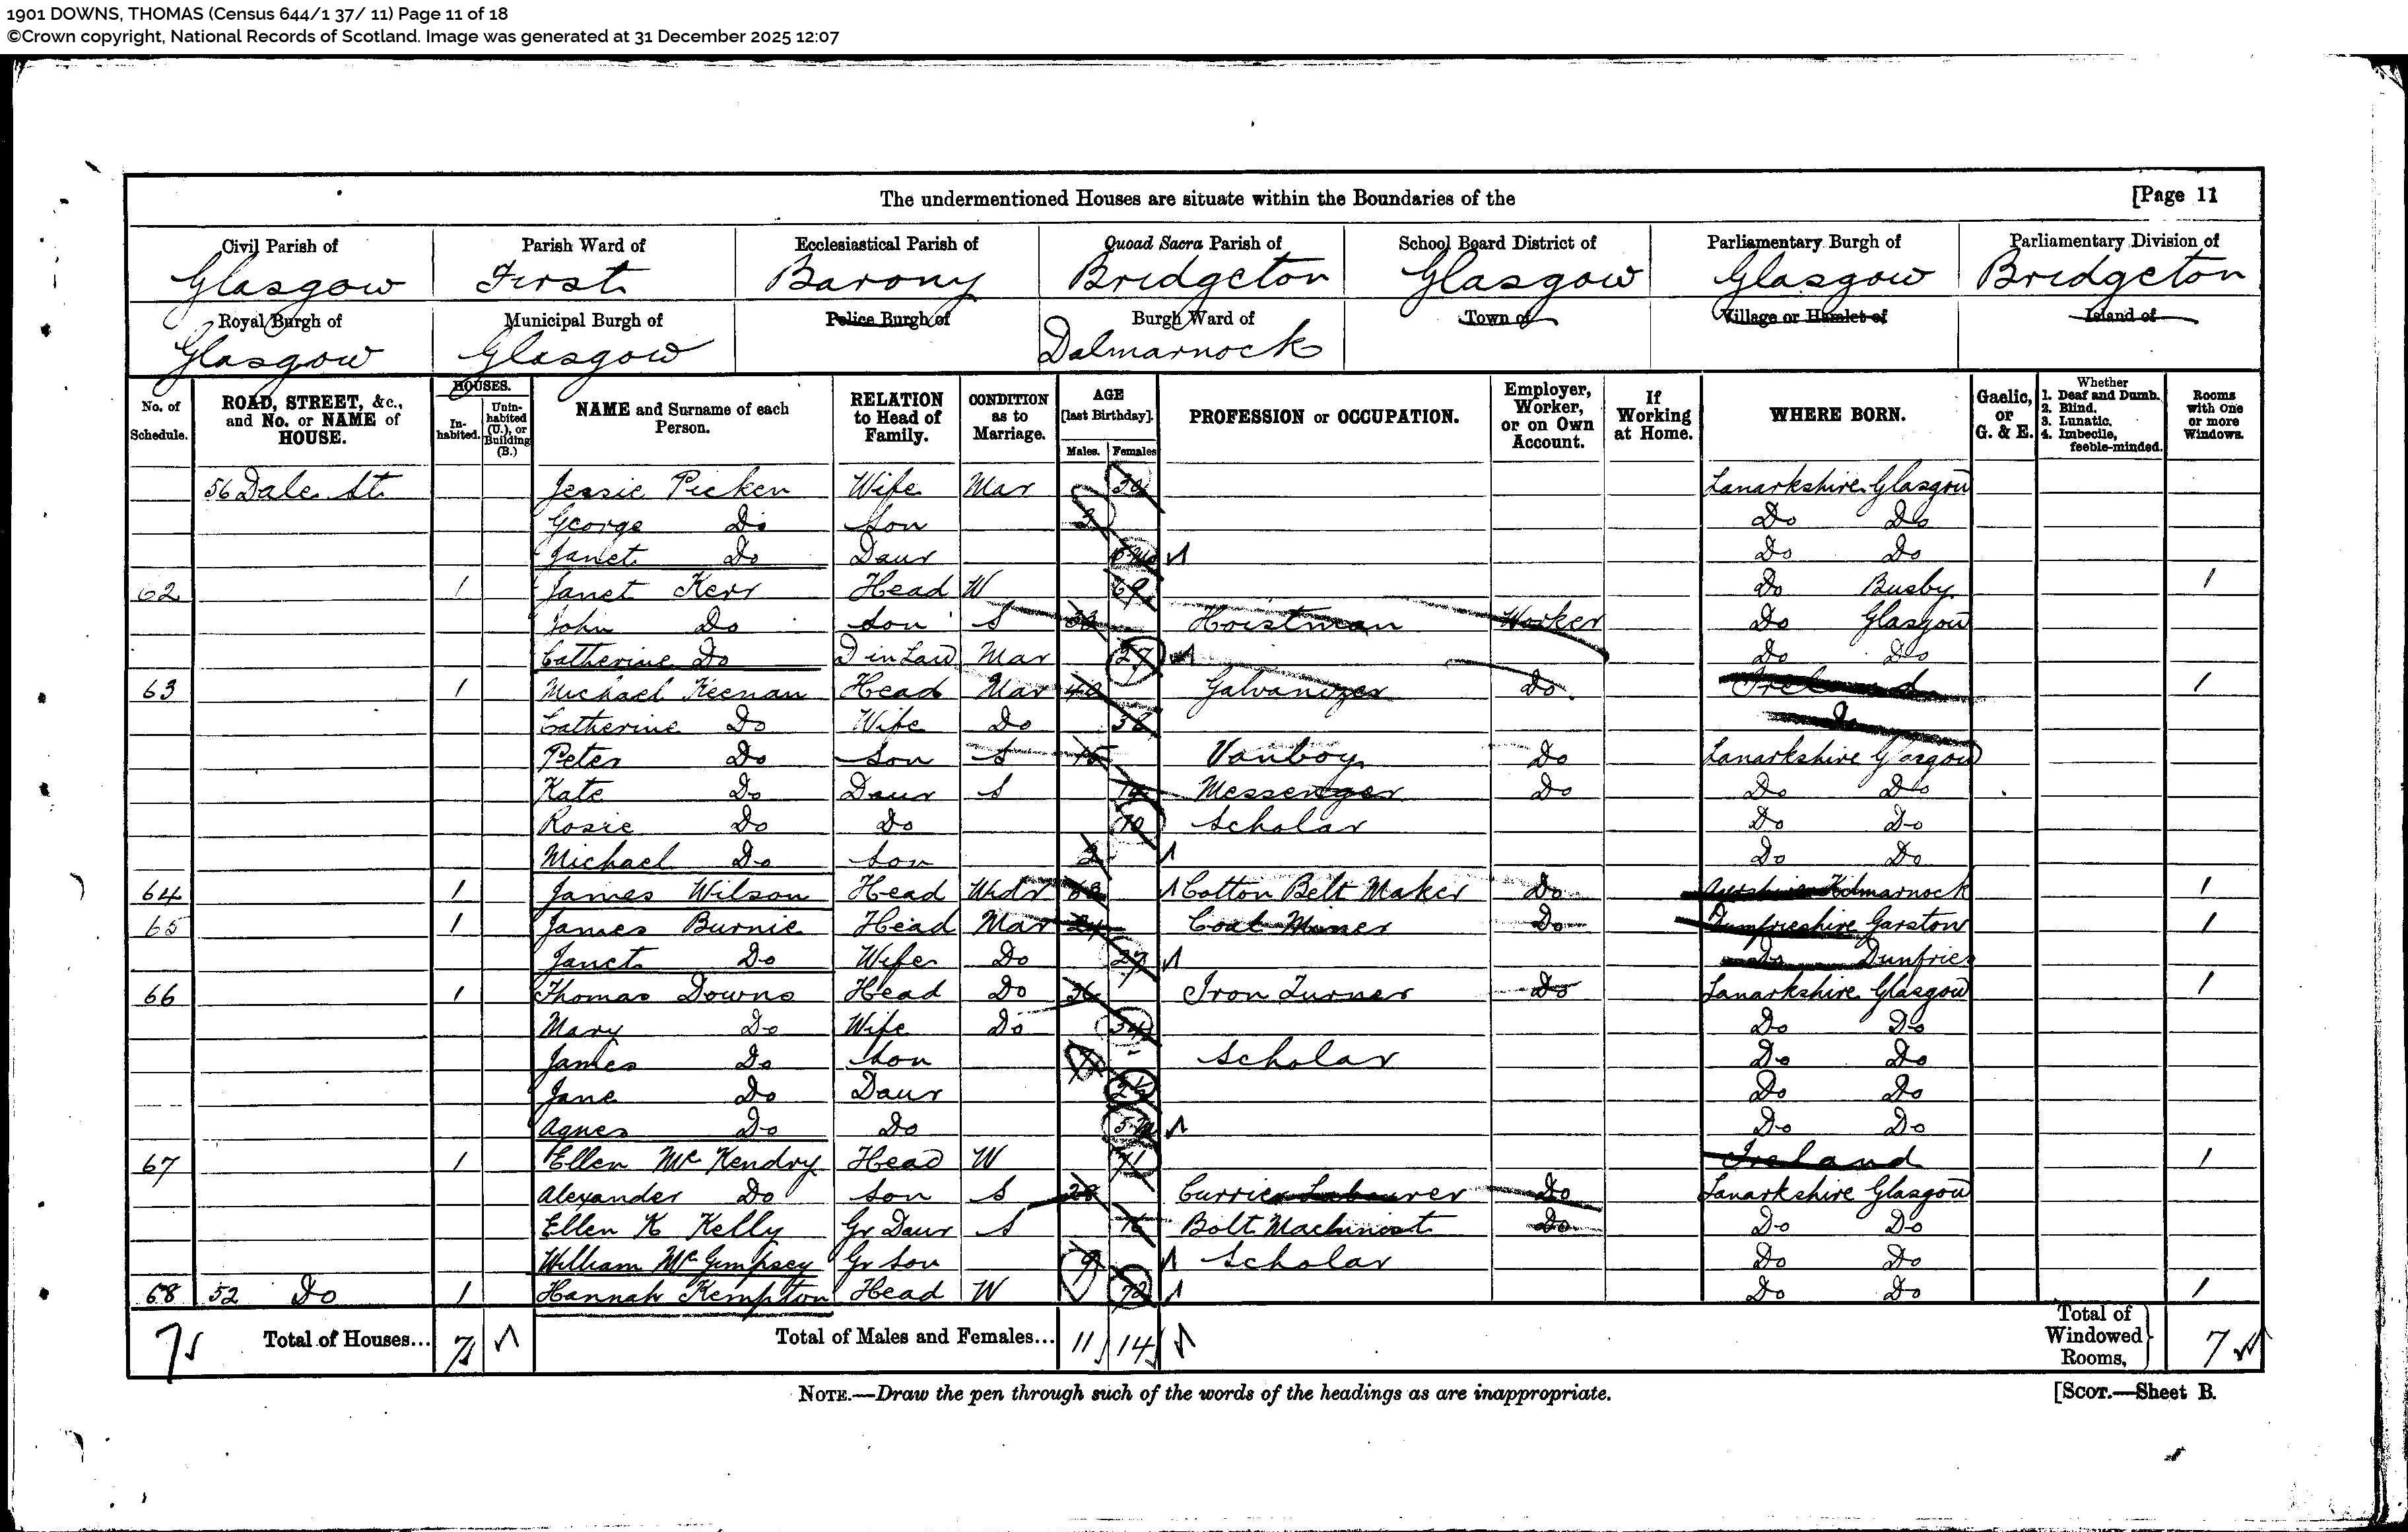 1901 DOWNS, THOMAS (Census 644/1 37/ 11) Page 11 of 18
©Crown copyright, National Records of Scotland. Image was generated at 31 December 2025 12:07
The undermentioned Houses are situate within the Boundaries of the [Page 11
Civil Parish of Parish Ward of Ecclesiastical Parish of Quoad Sacra Parish of School Board District of Parliamentary Burgh of Parliamentary Division of
Glasgow First Barony Bridgeton Glasgow Glasgow Bridgeton
Royal Burgh of Municipal Burgh of Police Burgh of Burgh Ward of Town of Village or Hamlet of Island of
Glasgow Glasgow Dalmarnock
No. of Schedule. ROAD, STREET, &c., and No. or NAME of HOUSE. HOUSES. In-habited. Unin-habited (U.), or Building (B.) NAME and Surname of each Person. RELATION to Head of Family. CONDITION as to Marriage. AGE [last Birthday]. Males. Females PROFESSION or OCCUPATION. Employer, Worker, or on Own Account. If Working at Home. WHERE BORN. Gaelic, or G. & E. Whether 1. Deaf and Dumb. 2. Blind. 3. Lunatic. 4. Imbecile, feeble-minded. Rooms with One or more Windows.
56 Dale St Jessie Picken Wife Mar 30 Lanarkshire Glasgow
George Do Son Do Do
Janet Do Daur Do Do
62 1 Janet Kerr Head W 69 Do Busby 1
John Do Son S 33 Hoistman Worker Do Glasgow
Catherine Do D in Law Mar 27 Do Do
63 1 Michael Keenan Head Mar 40 Galvanizer Do Ireland 1
Catherine Do Wife Do 38 Do
Peter Do Son S 15 Vanboy Do Lanarkshire Glasgow
Kate Do Daur S 14 Messenger Do Do Do
Rosie Do Do 10 Scholar Do Do
Michael Do Son 2 Do Do
64 1 James Wilson Head Widr 63 Cotton Belt Maker Do Ayrshire Kilmarnock 1
65 1 James Burnie Head Mar 24 Coal Miner Do Dumfrieshire Garston 1
Janet Do Wife Do 27 Do Dunfries
66 1 Thomas Downs Head Do 36 Iron Turner Do Lanarkshire Glasgow 1
Mary Do Wife Do 34 Do Do
James Do Son Scholar Do Do
Jane Do Daur Do Do
Agnes Do Do Do Do
67 1 Ellen McKendry Head W 71 Ireland 1
Alexander Do Son S 28 Currier Labourer Do Lanarkshire Glasgow
Ellen K Kelly Gr Daur S 16 Bolt Machinist Do Do Do
William McGimpsey Gr Son 9 Scholar Do Do
68 52 Do 1 Hannah Kempton Head W 72 Do Do 1
7 Total of Houses... 7 Total of Males and Females... 11 14 Total of Windowed Rooms, 7
NOTE.—Draw the pen through such of the words of the headings as are inappropriate. [SCOT.—Sheet B.